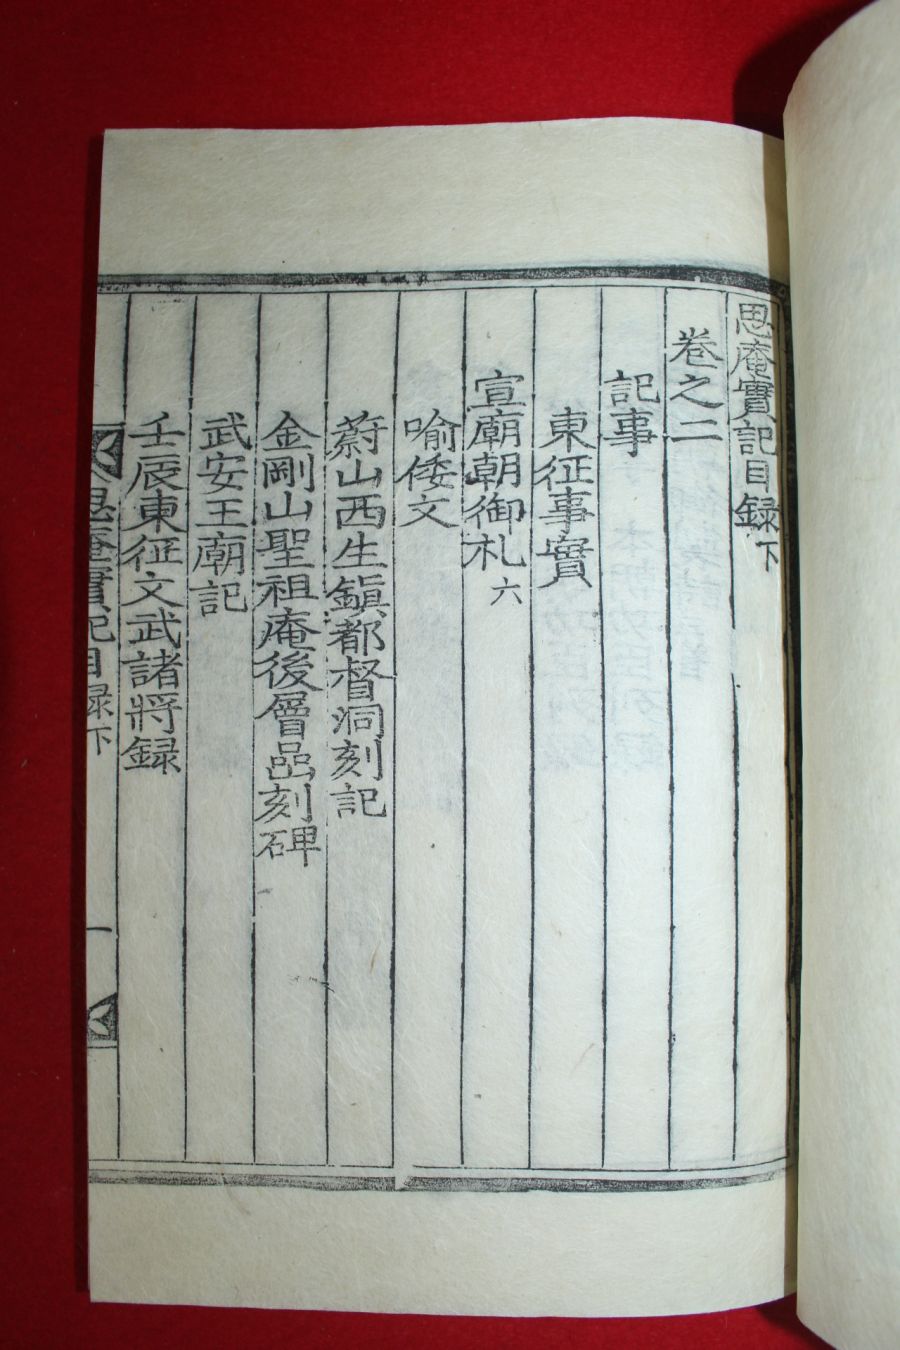 思庵實記目録下
卷之二
記事
東征事實
宣廟朝御札六
喻倭文
蔚山西生鎭都督洞刻記
金剛山聖祖庵後層嵒刻碑
武安王廟記
壬辰東征文武諸將録
思庵實記目録下
一